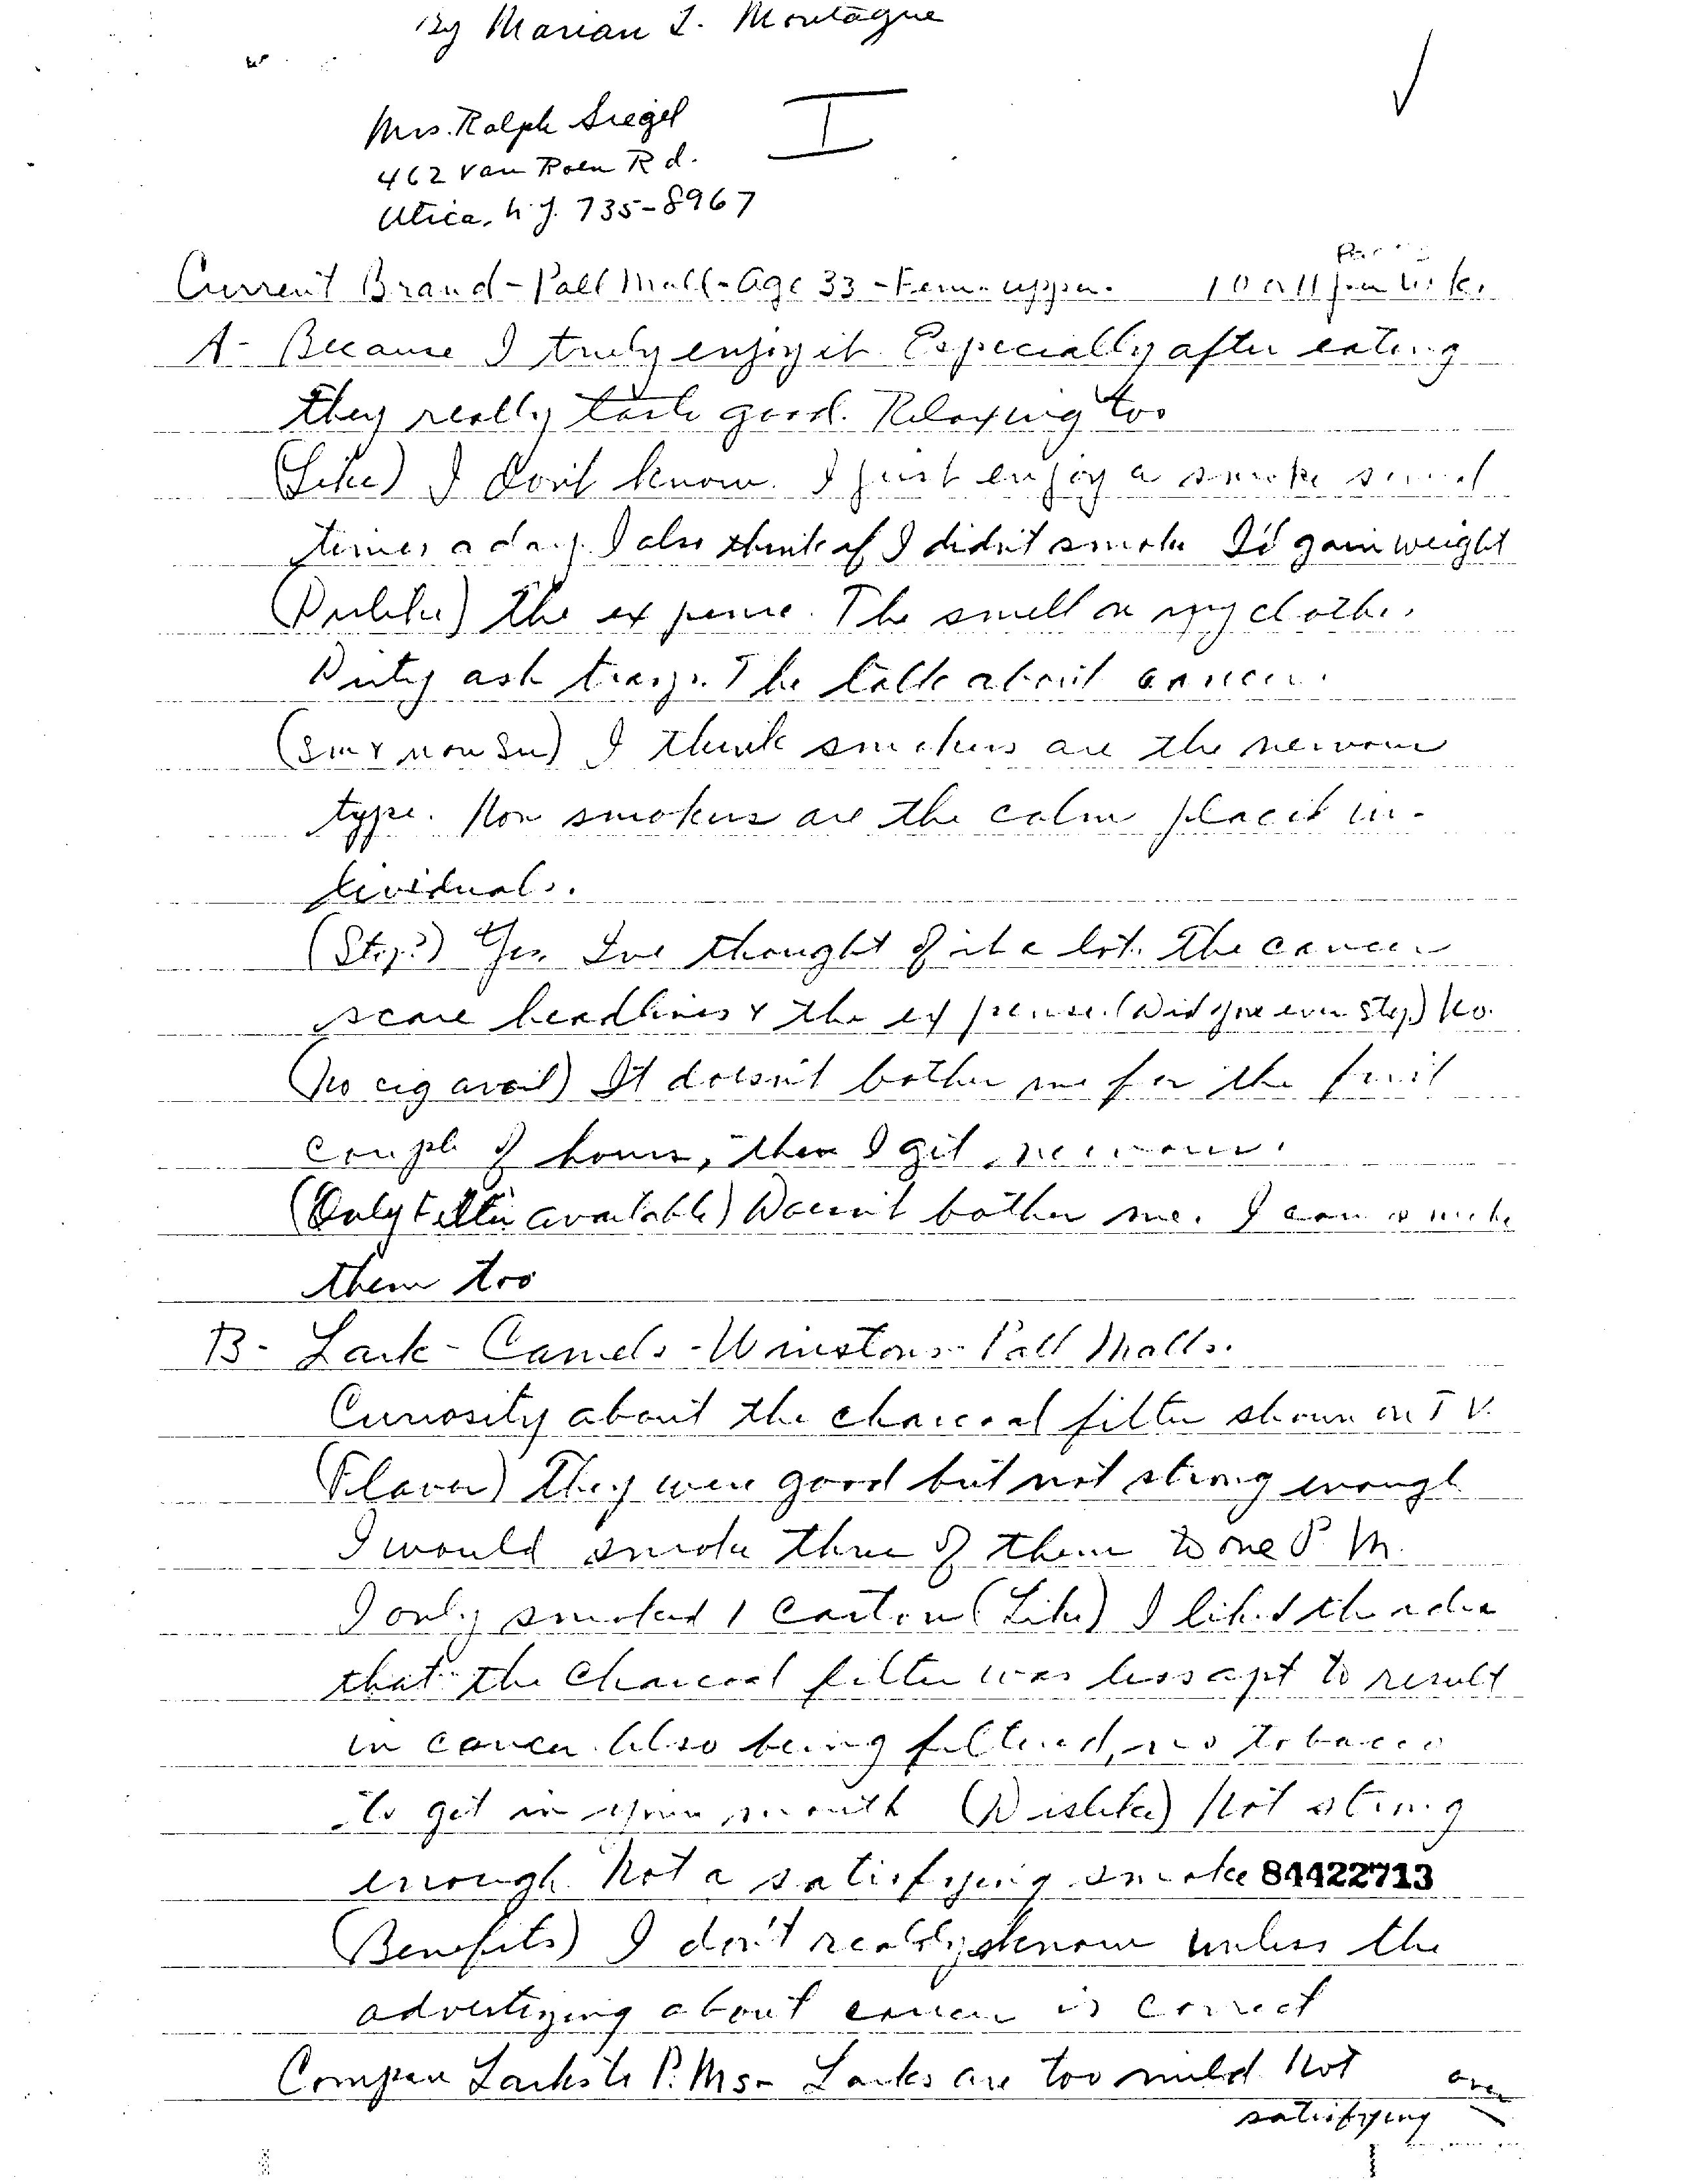 By Marian L. Montague
Mrs. Ralph Siegel
I
462 Van Roen Rd.
Utica, N.Y. 735-8967
Current Brand - Pall Mall - Age 33 - Fem - upper. 10 or 11 per wk.
A - Because I truly enjoy it. Especially after eating
they really taste good. Relaxing too
(Like) I don't know. I just enjoy a smoke several
times a day. I also think if I didn't smoke I'd gain weight
(Dislike) The expense. The smell on my clothes.
Dirty ash trays. The talk about cancer.
(Sm & non Sm) I think smokers are the nervous
type. Non smokers are the calm placid in-
dividuals.
(Stop?) Yes. I've thought of it a lot. The cancer
scare headlines & the expense. (Did you ever stop) No.
(No cig avail) It doesn't bother me for the first
couple of hours, then I get nervous.
(Only Filter available) Doesn't bother me. I can smoke
them too
B - Lark - Camels - Winstons - Pall Malls.
Curiosity about the charcoal filter shown on TV.
(Flavor) They were good but not strong enough
I would smoke three of them to one P.M.
I only smoked 1 carton (Like) I liked the idea
that the charcoal filter was less apt to result
in cancer. Also being filtered, no tobacco
to get in your mouth (Dislike) Not strong
enough. Not a satisfying smoke 84422713
(Benefits) I don't really know unless the
advertizing about cancer is correct
Compare Larks to P.Ms - Larks are too mild. Not
satisfying
over